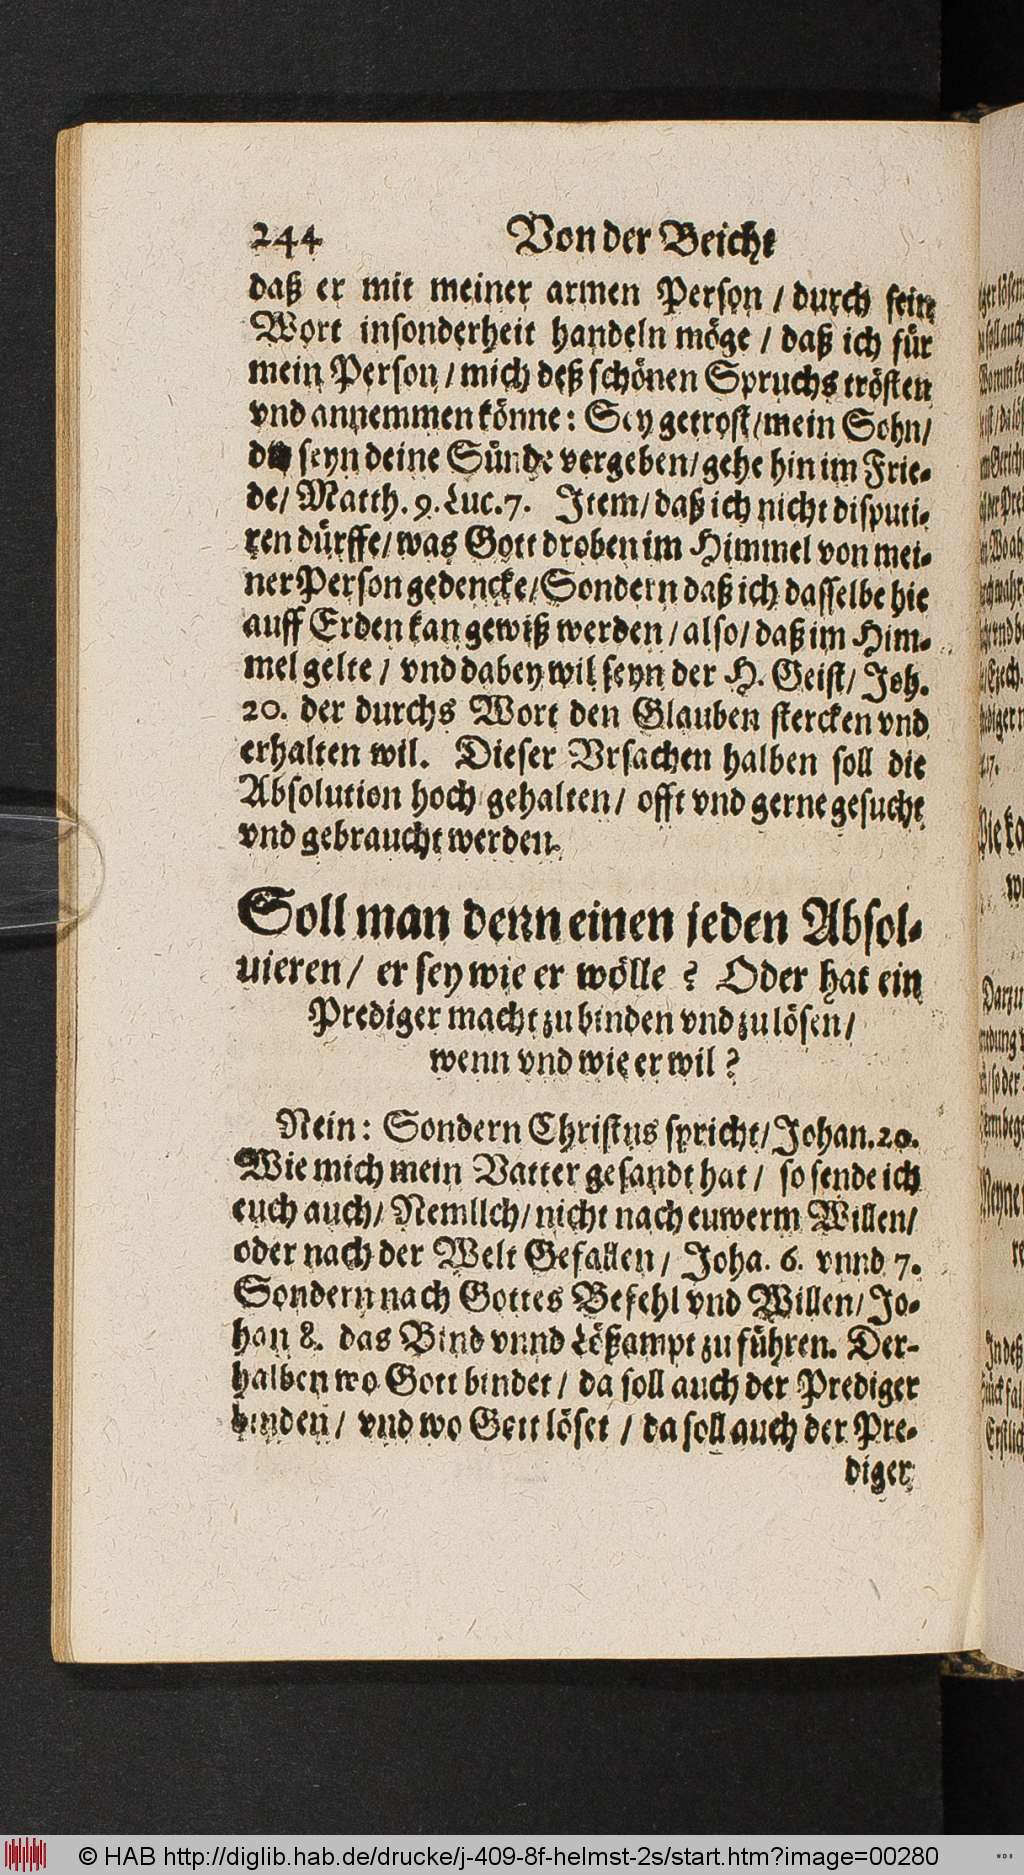 244 Von der Beicht
daß er mit meiner armen Person / durch sein
Wort insonderheit handeln möge / daß ich für
mein Person / mich deß schönen Spruchs trösten
vnd annemmen könne: Sey getrost / mein Sohn /
dir seyn deine Sünde vergeben / gehe hin im Frie-
de / Matth. 9. Luc. 7. Item / daß ich nicht disputi-
ren dürffe / was Gott droben im Himmel von mei-
ner Person gedencke / Sondern daß ich dasselbe hie
auff Erden kan gewiß werden / also / daß im Him-
mel gelte / vnd dabey wil seyn der H. Geist / Joh.
20. der durchs Wort den Glauben stercken vnd
erhalten wil. Dieser Vrsachen halben soll die
Absolution hoch gehalten / offt vnd gerne gesucht
vnd gebraucht werden.
Soll man denn einen jeden Absol-
uieren / er sey wie er wölle ? Oder hat ein
Prediger macht zu binden vnd zu lösen /
wenn vnd wie er wil ?
Nein: Sondern Christus spricht / Johan. 20.
Wie mich mein Vatter gesandt hat / so sende ich
euch auch / Nemllch / nicht nach euwerm Willen /
oder nach der Welt Gefallen / Joha. 6. vnnd 7.
Sondern nach Gottes Befehl vnd Willen / Jo-
han 8. das Bind vnnd Lößampt zu führen. Der-
halben wo Gott bindet / da soll auch der Prediger
binden / vnd wo Gott löset / da soll auch der Pre-
diger
© HAB http://diglib.hab.de/drucke/j-409-8f-helmst-2s/start.htm?image=00280